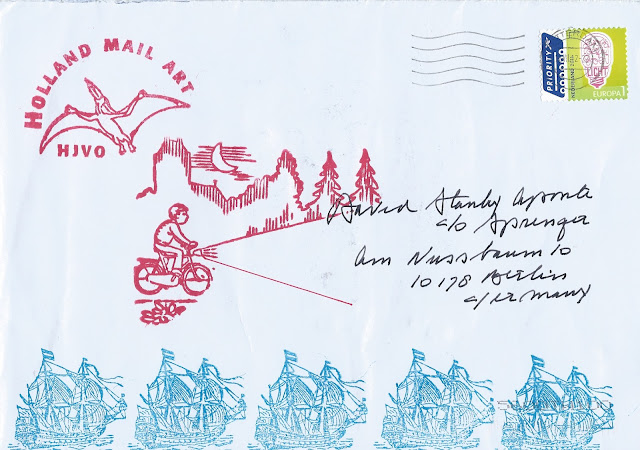 HOLLAND MAIL ART
HJVO
PRIORITY
EUROPA 1
David Stanley Aponte
c/o Sprenger
Am Nussbaum 10
10178 Berlin
Germany